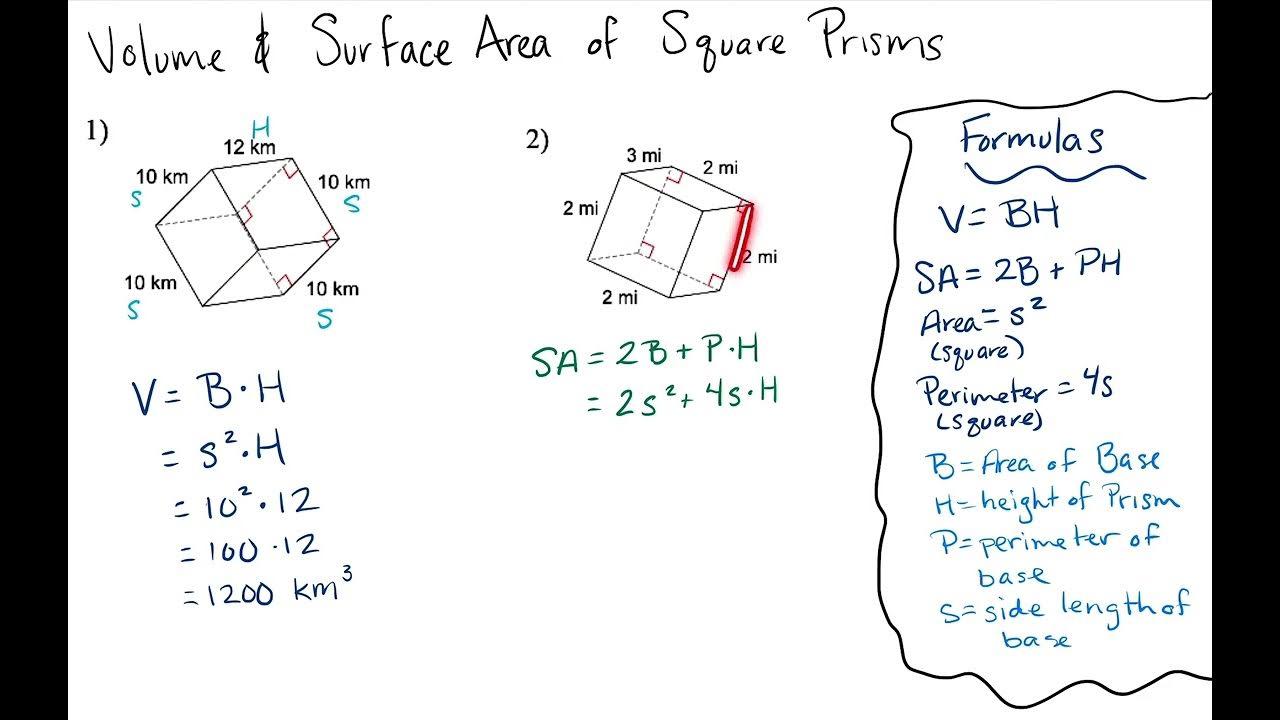 Volume & Surface Area of Square Prisms
1)
H
12 km
10 km
S
10 km
S
10 km
S
10 km
S
V = B·H
= s²·H
= 10²·12
= 100·12
= 1200 km³
2)
3 mi
2 mi
2 mi
2 mi
2 mi
SA = 2B + P·H
= 2s² + 4s·H
Formulas
V = BH
SA = 2B + PH
Area = s²
(square)
Perimeter = 4s
(square)
B = Area of Base
H = height of Prism
P = perimeter of
base
S = side length of
base